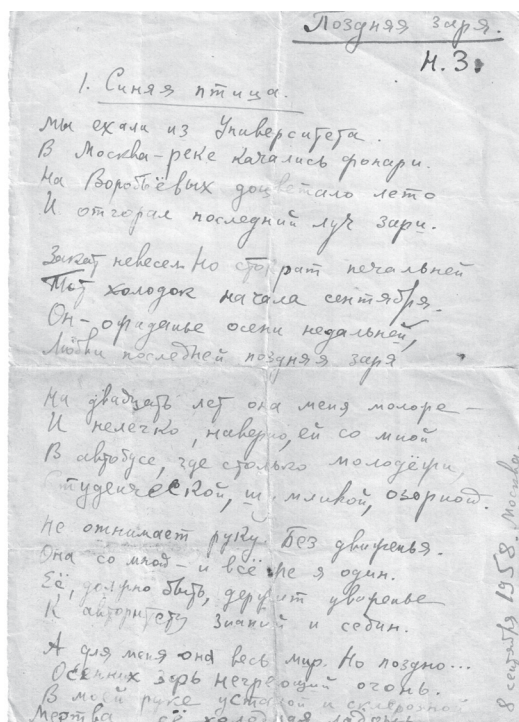 Поздняя заря.
Н. З.
1. Синяя птица.
Мы ехали из Университета.
В Москва-реке качались фонари.
На Воробьёвых доцветало лето
И отгорал последний луч зари.
Закат невесел. Но стократ печальней
Тот холодок начала сентября.
Он - ожиданье осени недальней,
Любви последней поздняя заря
На двадцать лет она меня моложе –
И нелегко, наверно, ей со мной
В автобусе, где столько молодёжи,
Студенческой, шумливой, озорной.
Не отнимает руку. Без движенья.
Она со мной – и всё же я один.
Её, должно быть, держит уваженье
К авторитету знаний и седин.
А для меня она весь мир. Но поздно...
Осенних зорь негреющий огонь.
В моей руке усталой и склерозной
Мертва её холодная ладонь.
8 сентября 1958. Москва